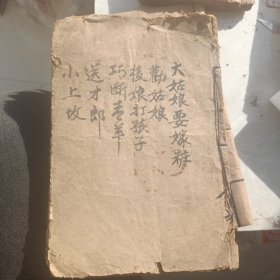 大姑娘要嫁粧
勸姑娘
後娘打孩子
巧断青羊
送才郎
小上坟